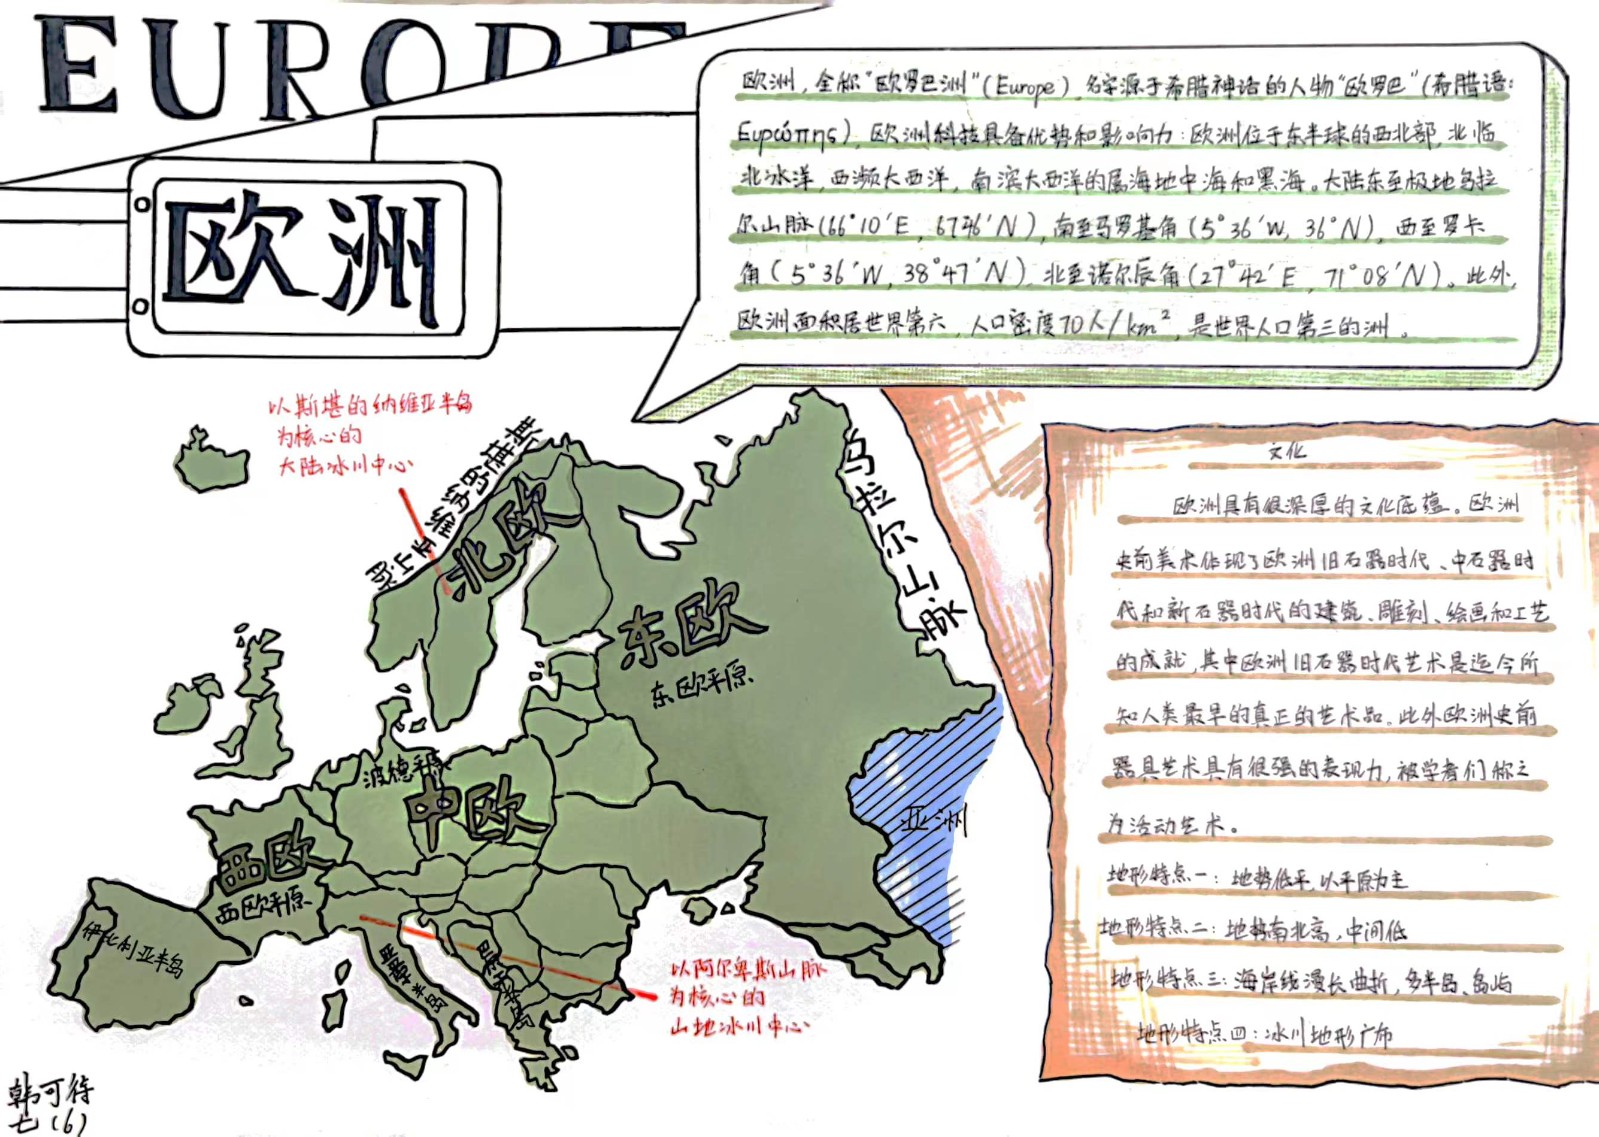 EUROPE
欧洲
欧洲，全称“欧罗巴洲”（Europe），名字源于希腊神话的人物“欧罗巴”（希腊语：
Ευρώπης），欧洲科技具备优势和影响力：欧洲位于东半球的西北部，北临
北冰洋，西濒大西洋，南滨大西洋的属海地中海和黑海。大陆东至极地乌拉
尔山脉（66°10′E，6746′N），南至马罗基角（5°36′W，36°N），西至罗卡
角（5°36′W，38°47′N），北至诺尔辰角（27°42′E，71°08′N）。此外，
欧洲面积居世界第六，人口密度70人/km²，是世界人口第三的洲。
以斯堪的纳维亚半岛
为核心的
大陆冰川中心
斯堪的纳维亚山脉
北欧
乌拉尔山脉
东欧
东欧平原
波德平原
中欧
西欧
西欧平原
亚洲
伊比利亚半岛
亚平宁半岛
巴尔干半岛
以阿尔卑斯山脉
为核心的
山地冰川中心
文化
欧洲具有很深厚的文化底蕴。欧洲
史前美术体现了欧洲旧石器时代、中石器时
代和新石器时代的建筑、雕刻、绘画和工艺
的成就，其中欧洲旧石器时代艺术是迄今所
知人类最早的真正的艺术品。此外欧洲史前
器具艺术具有很强的表现力，被学者们称之
为活动艺术。
地形特点一：地势低平，以平原为主
地形特点二：地势南北高，中间低
地形特点三：海岸线漫长曲折，多半岛、岛屿
地形特点四：冰川地形广布
韩可待
七（6）